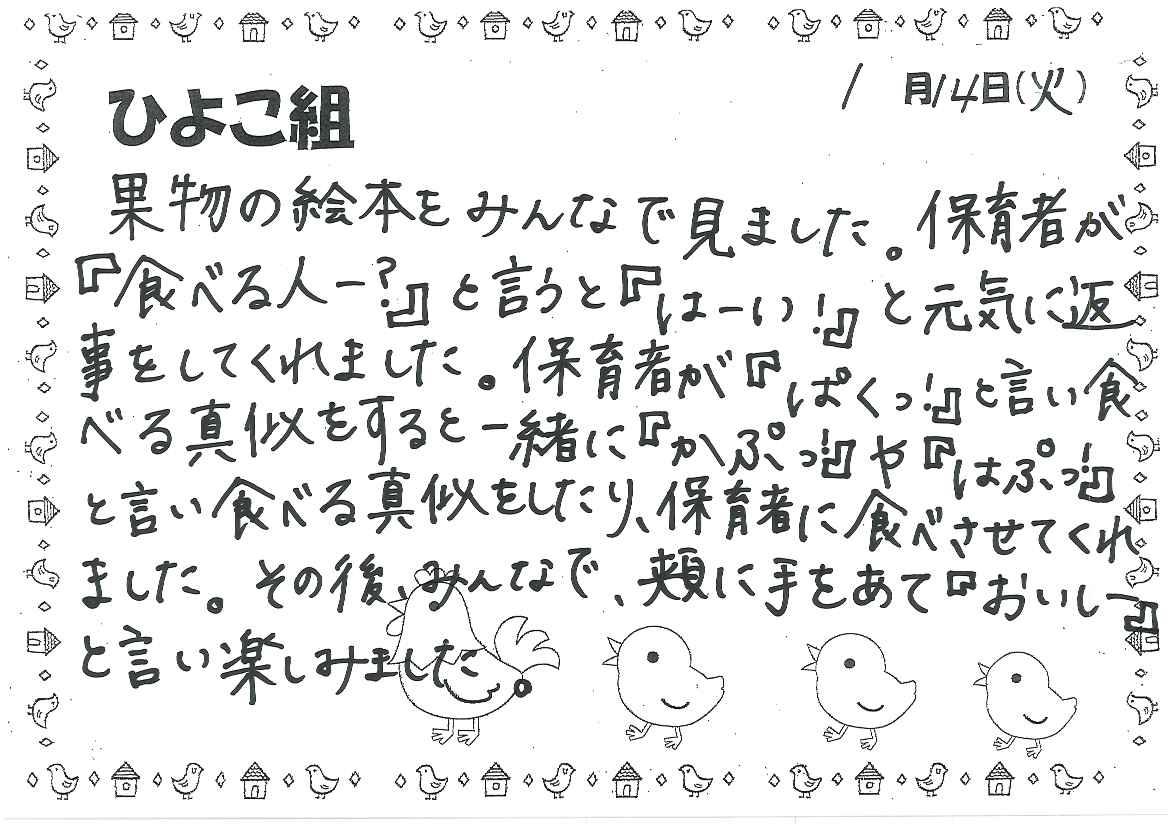 1月14日(火)
ひよこ組
果物の絵本をみんなで見ました。保育者が
『食べる人ー?!』と言うと『はーい!』と元気に返
事をしてくれました。保育者が『ぱくっ!』と言い食
べる真似をすると一緒に『かぷっ!』や『はぷっ!』
と言い食べる真似をしたり、保育者に食べさせてくれ
ました。その後、みんなで、頬に手をあて『おいしー』
と言い楽しみました。